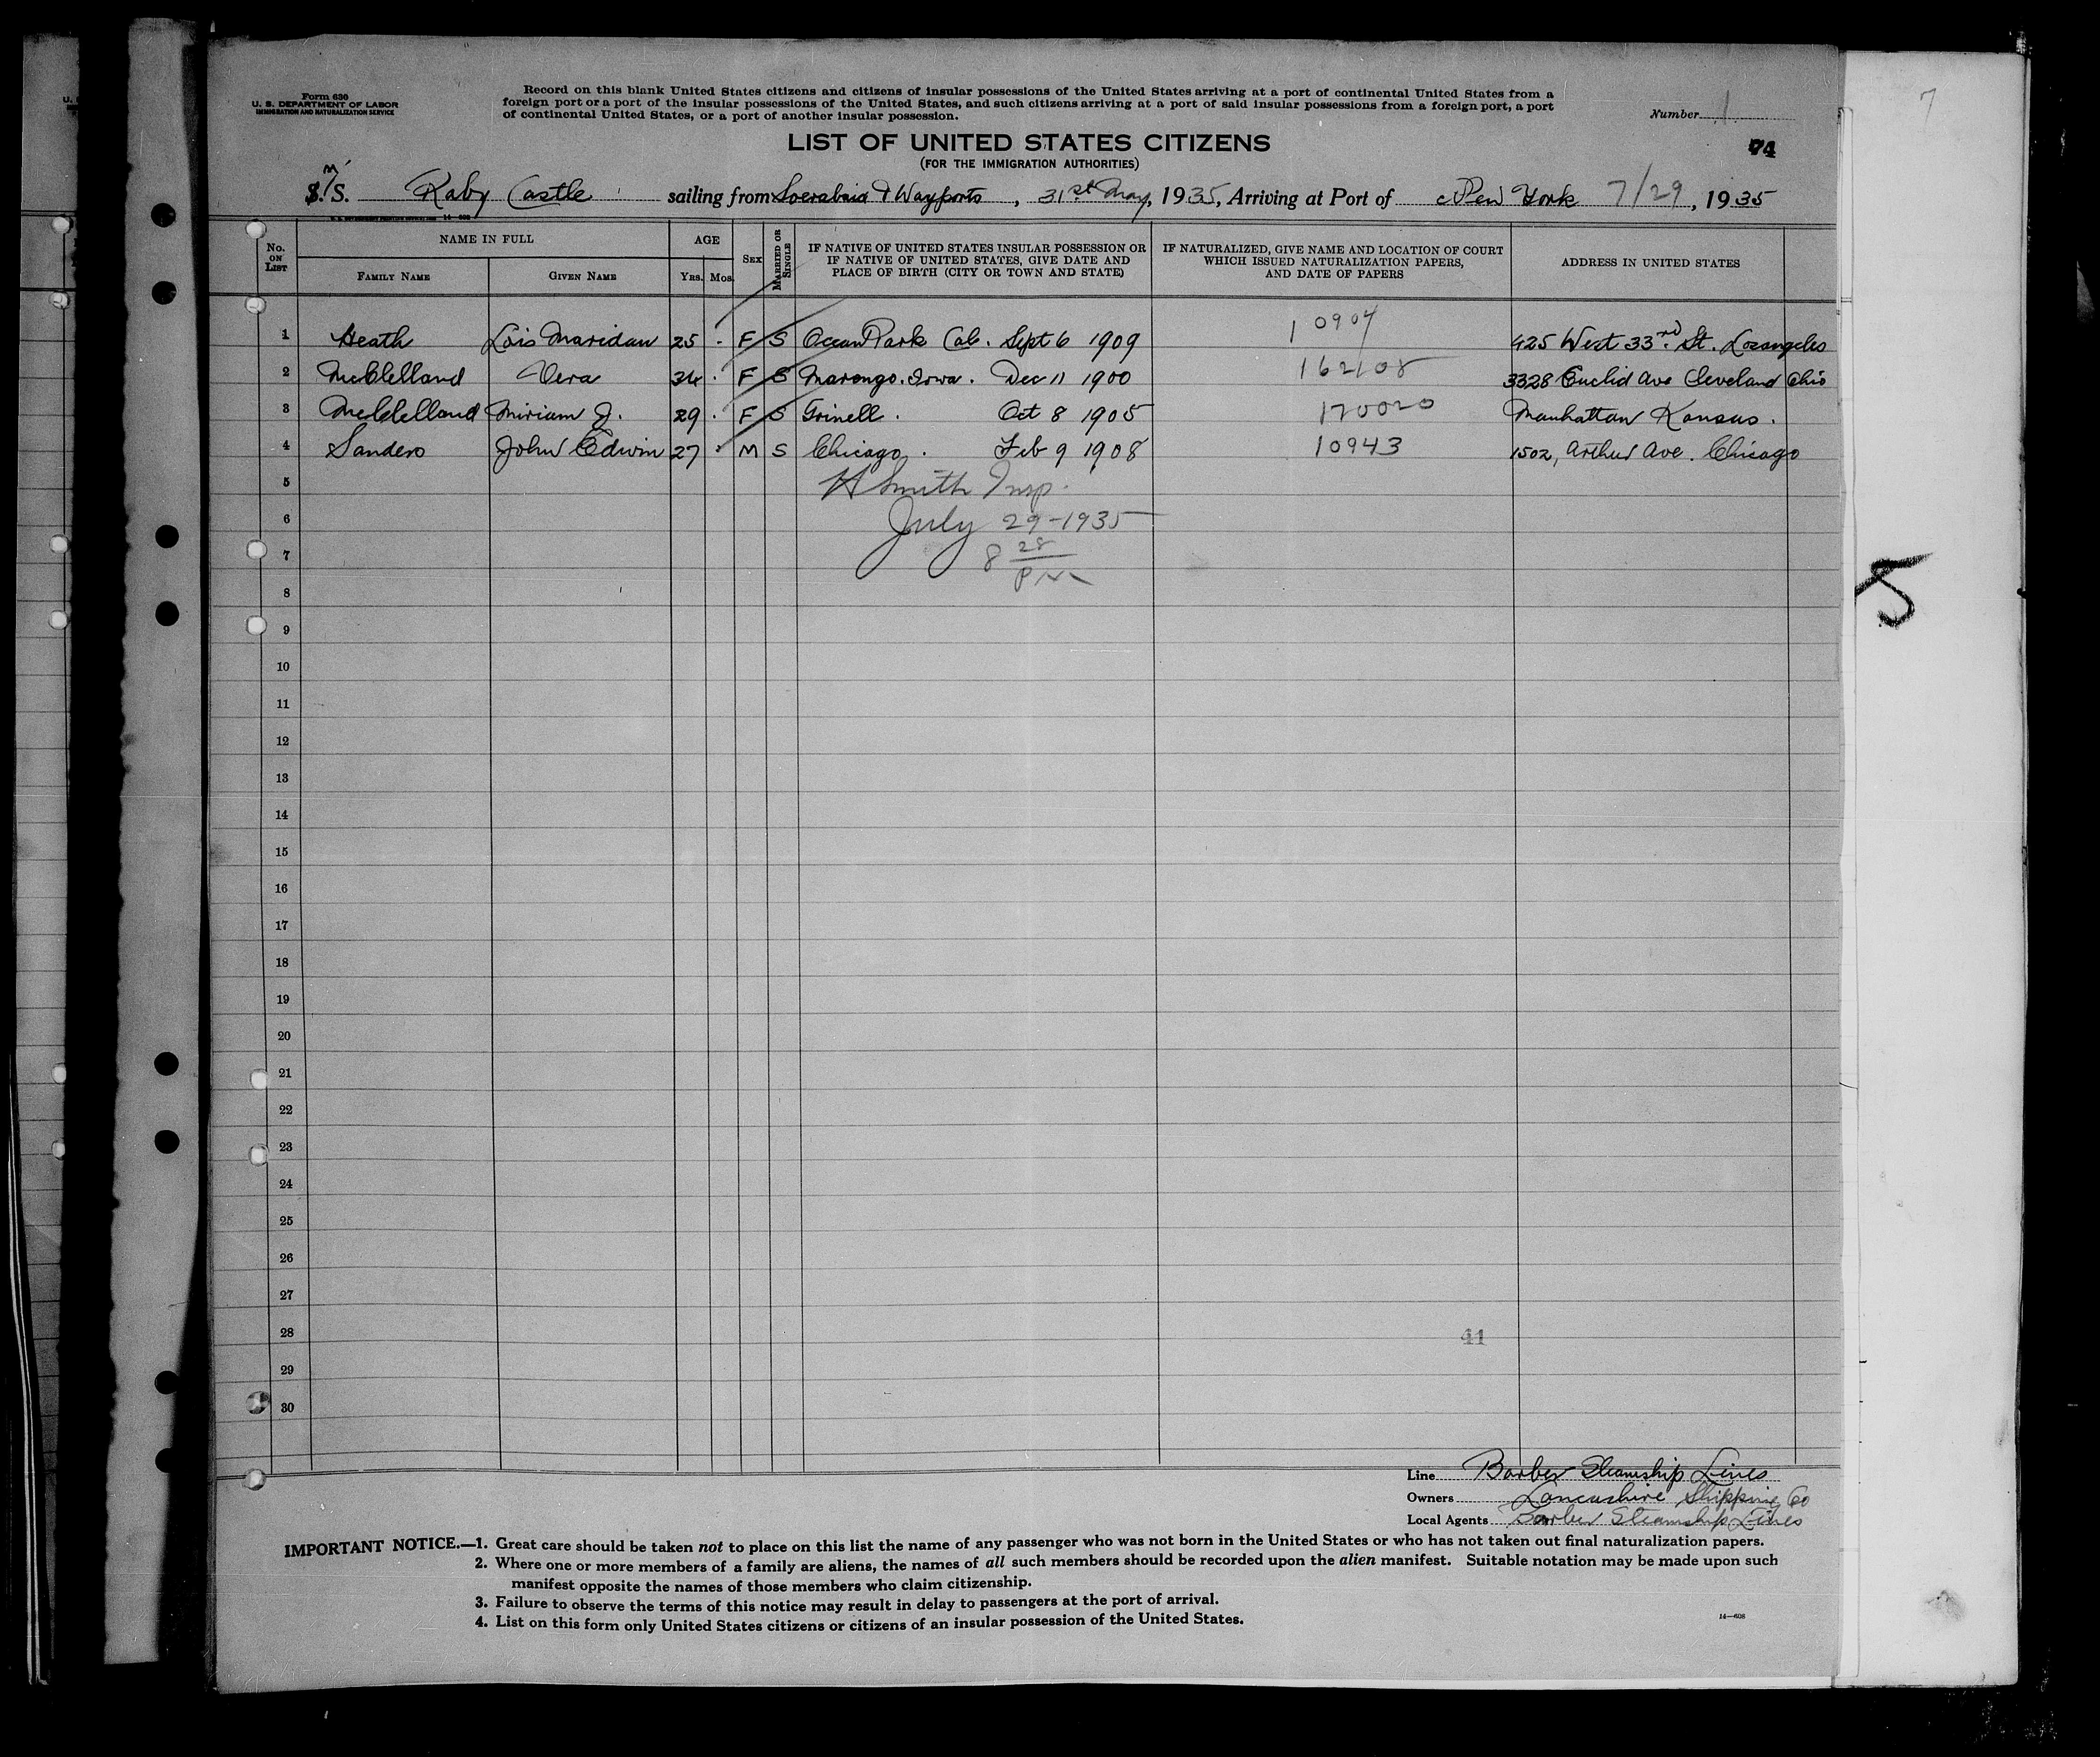 Form 630
U. S. DEPARTMENT OF LABOR
IMMIGRATION AND NATURALIZATION SERVICE
Record on this blank United States citizens and citizens of insular possessions of the United States arriving at a port of continental United States from a
foreign port or a port of the insular possessions of the United States, and such citizens arriving at a port of said insular possessions from a foreign port, a port
of continental United States, or a port of another insular possession.
Number 1
7
LIST OF UNITED STATES CITIZENS
(FOR THE IMMIGRATION AUTHORITIES)
74
M/S. Raby Castle sailing from Soerabaia & Wayports, 31st May, 1935, Arriving at Port of New York 7/29, 1935
No. ON LIST
NAME IN FULL
FAMILY NAME
GIVEN NAME
AGE
YRS. MOS.
SEX
MARRIED OR SINGLE
IF NATIVE OF UNITED STATES INSULAR POSSESSION OR
IF NATIVE OF UNITED STATES, GIVE DATE AND
PLACE OF BIRTH (CITY OR TOWN AND STATE)
IF NATURALIZED, GIVE NAME AND LOCATION OF COURT
WHICH ISSUED NATURALIZATION PAPERS,
AND DATE OF PAPERS
ADDRESS IN UNITED STATES
1 Heath Lois Maridan 25 - F S Ocean Park Cal. Sept 6 1909 10904 425 West 33rd St. Losangeles
2 McClelland Vera 34 F S Marengo. Iowa. Dec 11 1900 162108 3328 Euclid Ave Cleveland Ohio
3 McClelland Miriam J. 29 F S Grinell. Oct 8 1905 170020 Manhattan Kansas.
4 Sanders John Edwin 27 M S Chicago. Feb 9 1908 10943 1502, Arthur Ave. Chicago
5 H Smith Insp.
6 July 29-1935
7 8 28 PM
8
9
10
11
12
13
14
15
16
17
18
19
20
21
22
23
24
25
26
27
28 41
29
30
5
Line Barber Steamship Lines
Owners Lancashire Shipping Co
Local Agents Barber Steamship Lines
IMPORTANT NOTICE.—1. Great care should be taken not to place on this list the name of any passenger who was not born in the United States or who has not taken out final naturalization papers.
2. Where one or more members of a family are aliens, the names of all such members should be recorded upon the alien manifest. Suitable notation may be made upon such
manifest opposite the names of those members who claim citizenship.
3. Failure to observe the terms of this notice may result in delay to passengers at the port of arrival.
4. List on this form only United States citizens or citizens of an insular possession of the United States.
14—608